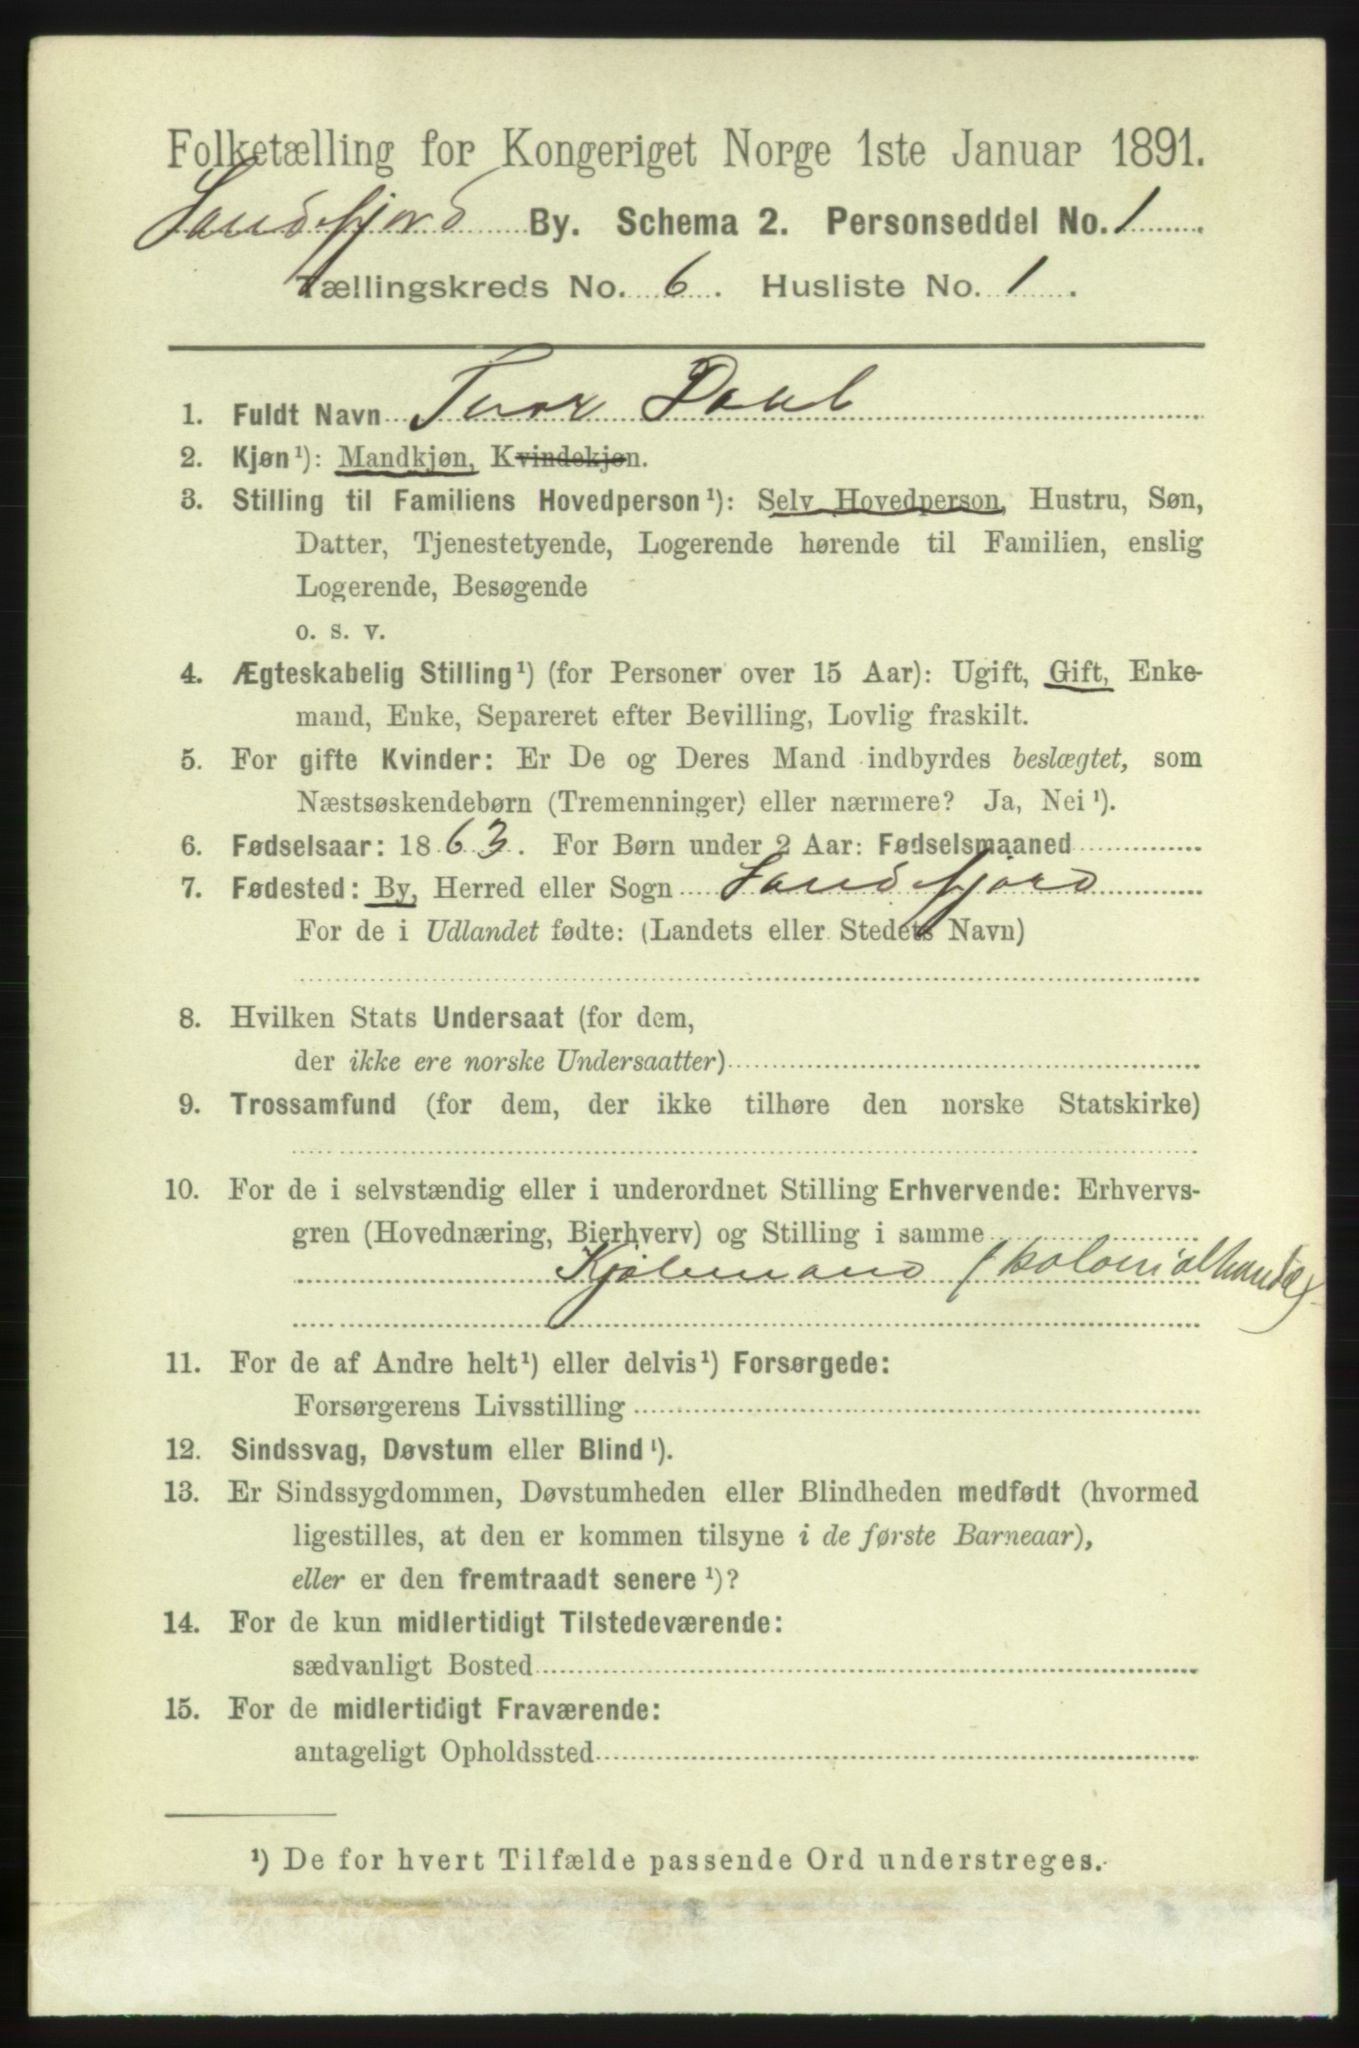 Folketælling for Kongeriget Norge 1ste Januar 1891.
Sandefjord By. Schema 2. Personseddel No. 1.
Tællingskreds No. 6. Husliste No. 1.
1. Fuldt Navn Thor Dahl
2. Kjøn ¹): Mandkjøn, Kvindekjøn.
3. Stilling til Familiens Hovedperson ¹): Selv Hovedperson, Hustru, Søn,
Datter, Tjenestetyende, Logerende hørende til Familien, enslig
Logerende, Besøgende
o. s. v.
4. Ægteskabelig Stilling ¹) (for Personer over 15 Aar): Ugift, Gift, Enke-
mand, Enke, Separeret efter Bevilling, Lovlig fraskilt.
5. For gifte Kvinder: Er De og Deres Mand indbyrdes beslægtet, som
Næstsøskendebørn (Tremenninger) eller nærmere? Ja, Nei ¹).
6. Fødselsaar: 1863. For Børn under 2 Aar: Fødselsmaaned
7. Fødested: By, Herred eller Sogn Sandefjord
For de i Udlandet fødte: (Landets eller Stedets Navn)
8. Hvilken Stats Undersaat (for dem,
der ikke ere norske Undersaatter)
9. Trossamfund (for dem, der ikke tilhøre den norske Statskirke)
10. For de i selvstændig eller i underordnet Stilling Erhvervende: Erhvervs-
gren (Hovednæring, Bierhverv) og Stilling i samme
Kjøbmand (kolonialhandel)
11. For de af Andre helt ¹) eller delvis ¹) Forsørgede:
Forsørgerens Livsstilling
12. Sindssvag, Døvstum eller Blind ¹).
13. Er Sindssygdommen, Døvstumheden eller Blindheden medfødt (hvormed
ligestilles, at den er kommen tilsyne i de første Barneaar),
eller er den fremtraadt senere ¹)?
14. For de kun midlertidigt Tilstedeværende:
sædvanligt Bosted
15. For de midlertidigt Fraværende:
antageligt Opholdssted
¹) De for hvert Tilfælde passende Ord understreges.